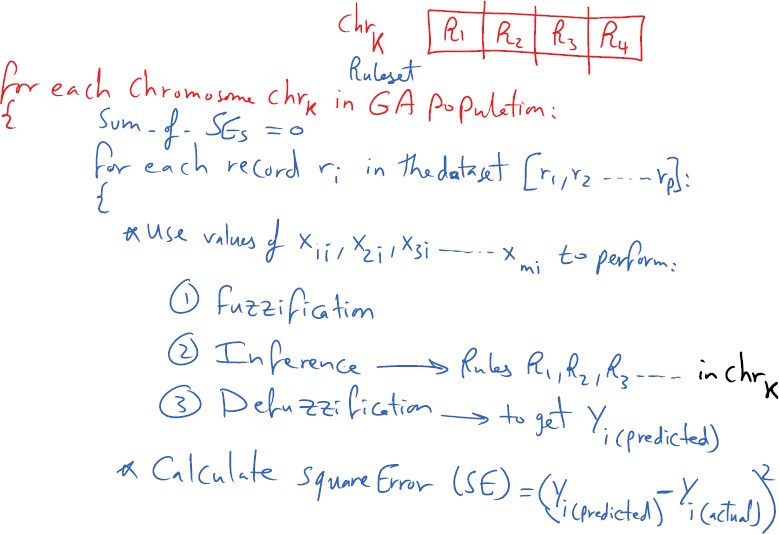 chrK R1 R2 R3 R4
Ruleset
for each Chromosome chrK in GA population:
{
Sum-of-SEs = 0
for each record ri in the dataset [r1, r2 ----- rp]:
{
* Use values of x1i, x2i, x3i ------ xmi to perform:
① Fuzzification
② Inference → Rules R1, R2, R3 ---- in chrK
③ Defuzzification → to get Yi(predicted)
* Calculate square Error (SE) = (Yi(predicted) - Yi(actual))²